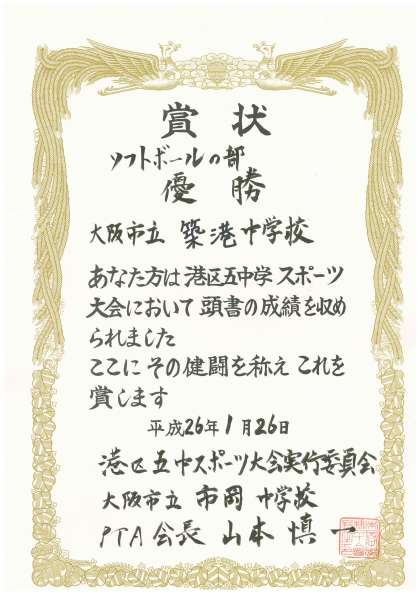 賞状
ソフトボールの部
優勝
大阪市立 築港中学校
あなた方は港区五中学スポーツ
大会において頭書の成績を収め
られました
ここにその健闘を称えこれを
賞します
平成26年1月26日
港区五中スポーツ大会実行委員会
大阪市立 市岡中学校
PTA会長 山本慎一